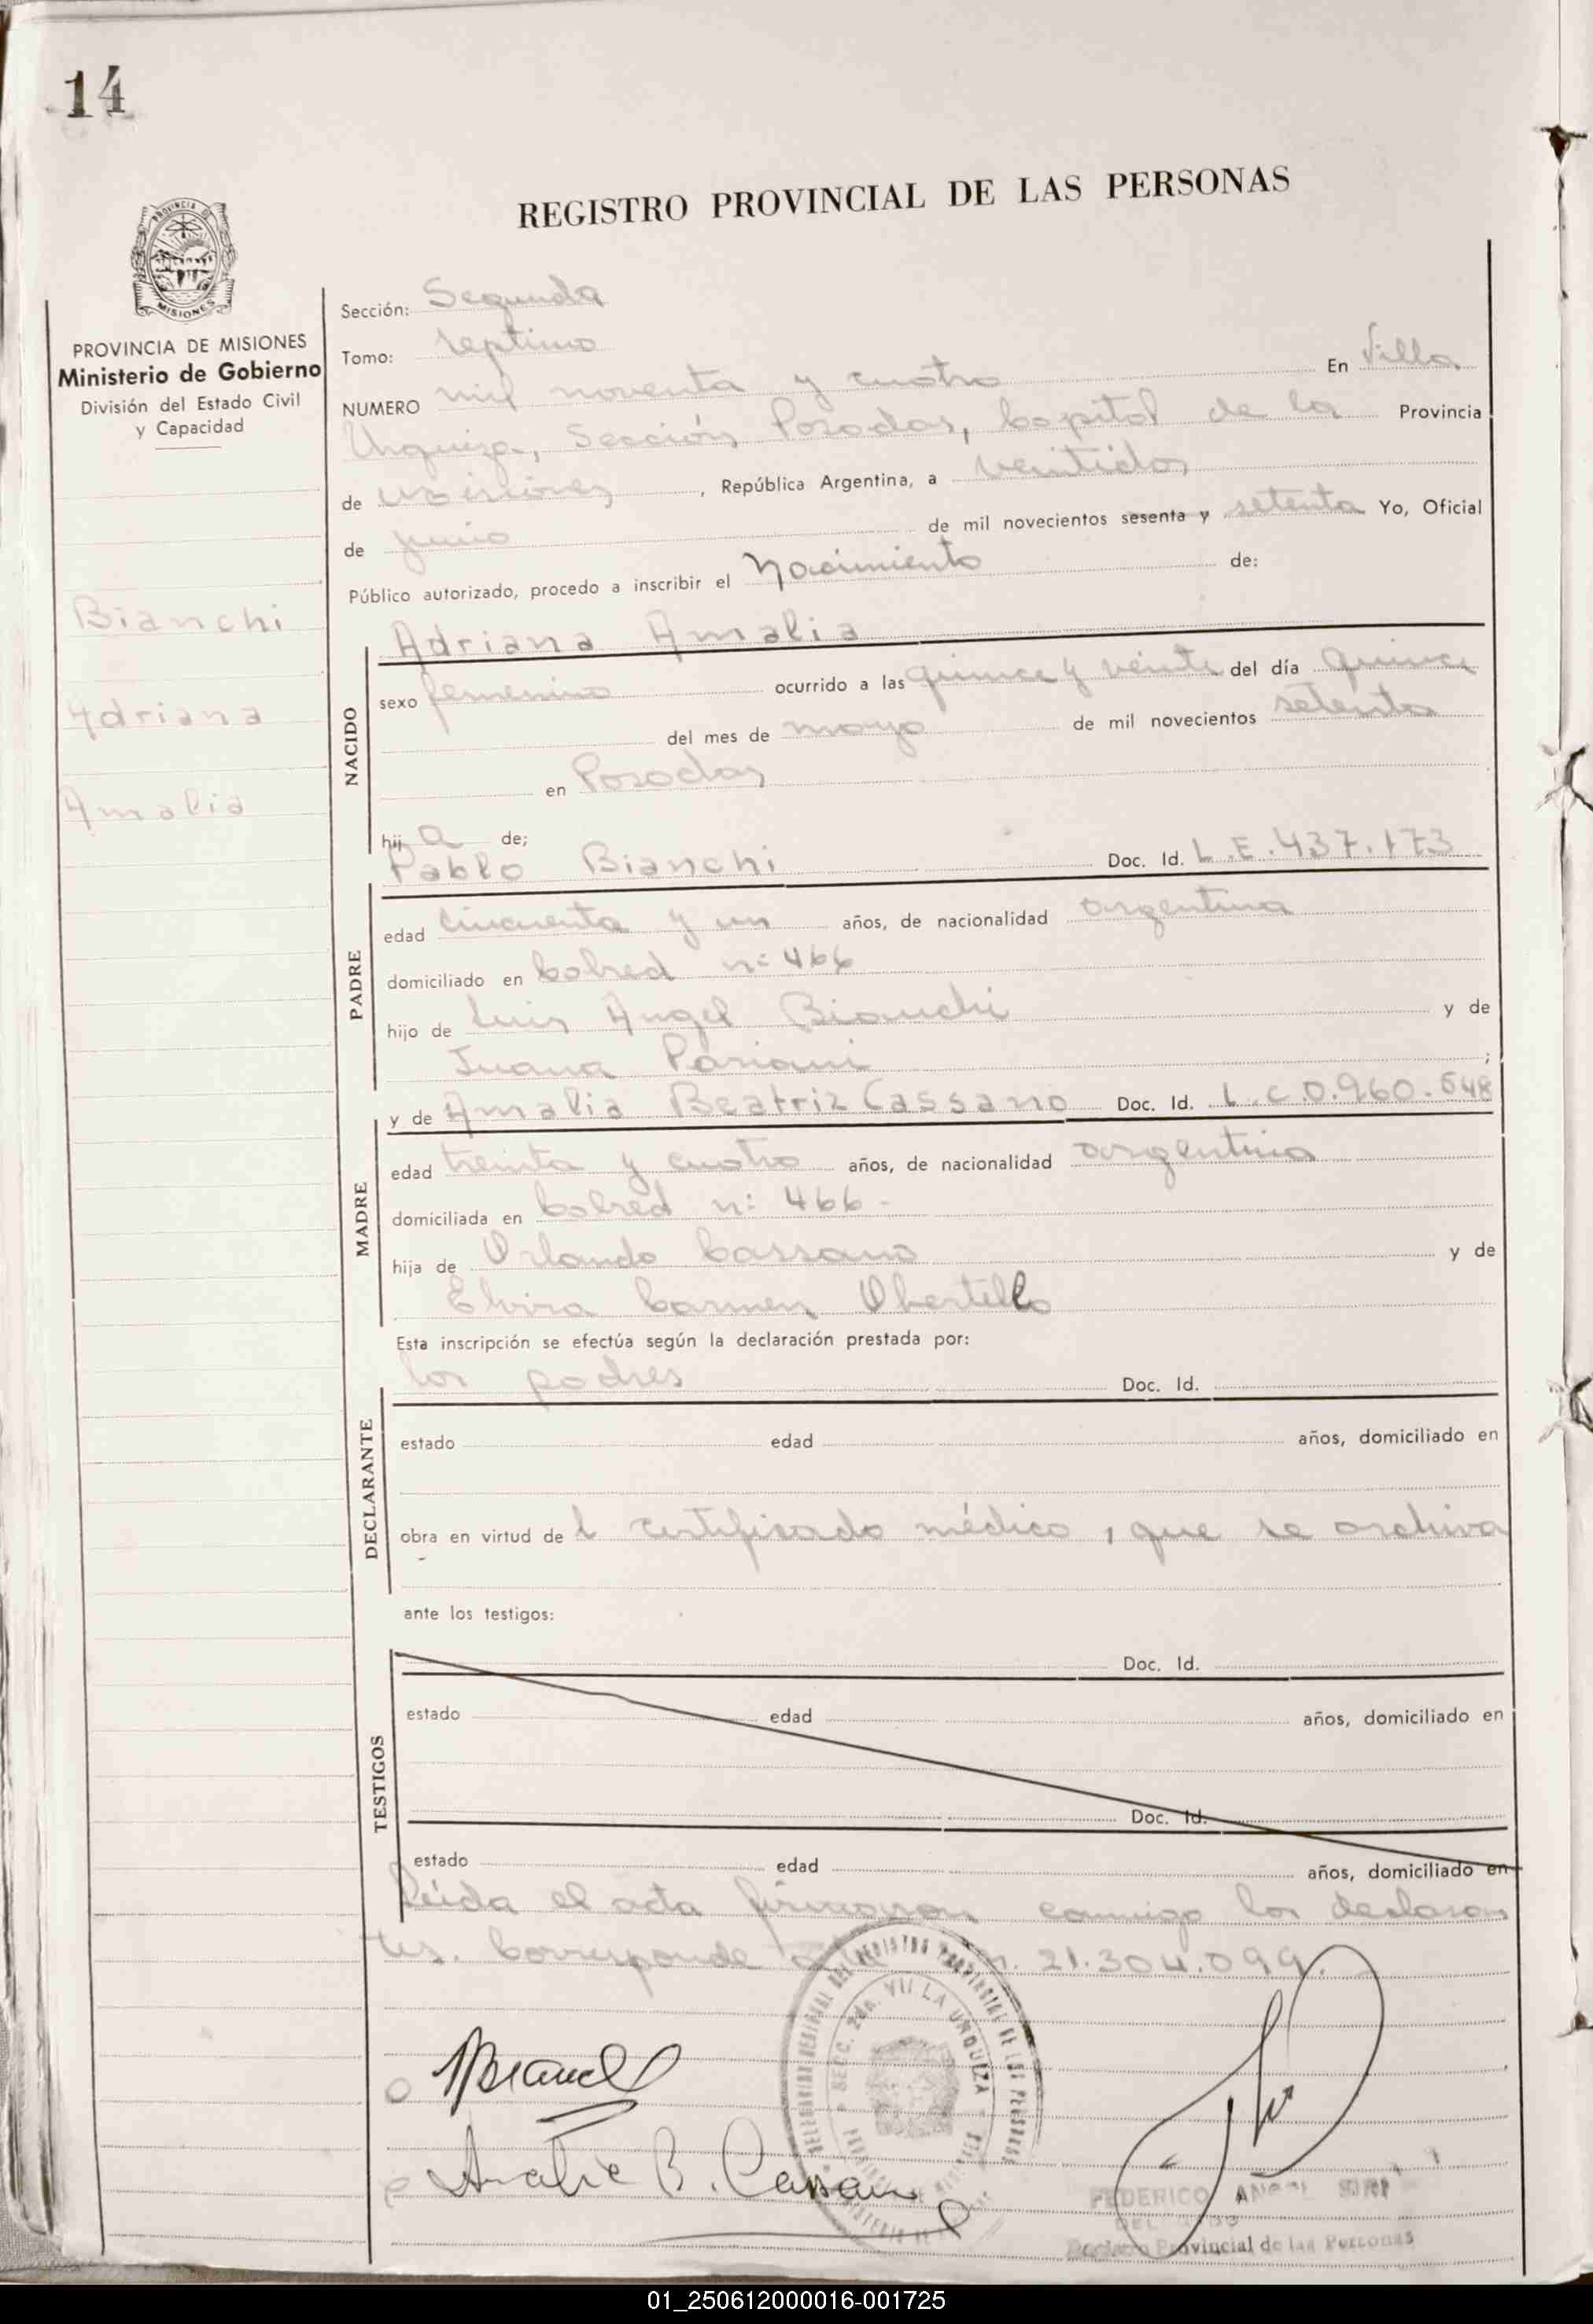 14
REGISTRO PROVINCIAL DE LAS PERSONAS
PROVINCIA DE
MISIONES
PROVINCIA DE MISIONES
Ministerio de Gobierno
División del Estado Civil
y Capacidad
Bianchi
Adriana
Amalia
Sección: Segunda
Tomo: septimo
NUMERO mil noventa y cuatro En Villa
Urquiza, Sección Posadas, Capital de la Provincia
de Misiones, República Argentina, a veintidos
de junio de mil novecientos sesenta y setenta Yo, Oficial
Público autorizado, procedo a inscribir el Nacimiento de:
NACIDO
Adriana Amalia
sexo femenino ocurrido a las quince y veinte del día quince
del mes de mayo de mil novecientos setenta
en Posadas
hija de;
PADRE
Pablo Bianchi Doc. Id. L.E. 437.173
edad cincuenta y un años, de nacionalidad argentina
domiciliado en Colred n: 466
hijo de Luis Angel Bianchi y de
Juana Pariani ;
MADRE
y de Amalia Beatriz Cassano Doc. Id. L.C 0.960.548
edad treinta y cuatro años, de nacionalidad argentina
domiciliada en Colred n: 466 -
hija de Orlando Cassano y de
Elvira Carmen Obertello
Esta inscripción se efectúa según la declaración prestada por:
DECLARANTE
los padres Doc. Id.
estado edad años, domiciliado en
obra en virtud del certificado médico, que se archiva
ante los testigos:
TESTIGOS
Doc. Id.
estado edad años, domiciliado en
Doc. Id.
estado edad años, domiciliado en
Leida el acta firmaron conmigo los declaran
tes. Corresponde 21.304.099.
REGISTRO PROVINCIAL DE LAS PERSONAS
SECC. 2da. VILLA URQUIZA
Amalia B. Cassano
FEDERICO ANGEL
Registro Provincial de las Personas
01_250612000016-001725